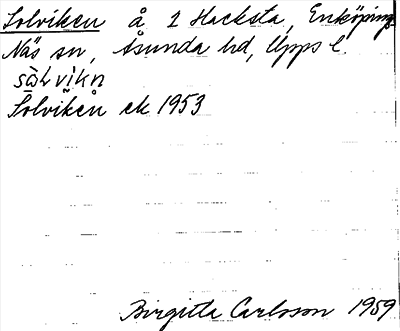 Solviken å 1 Hacksta, Enköpings-
Näs sn, Åsunda hd, Upps l.
sò̀lvikn
Solviken ek 1953
Birgitta Carlsson 1959